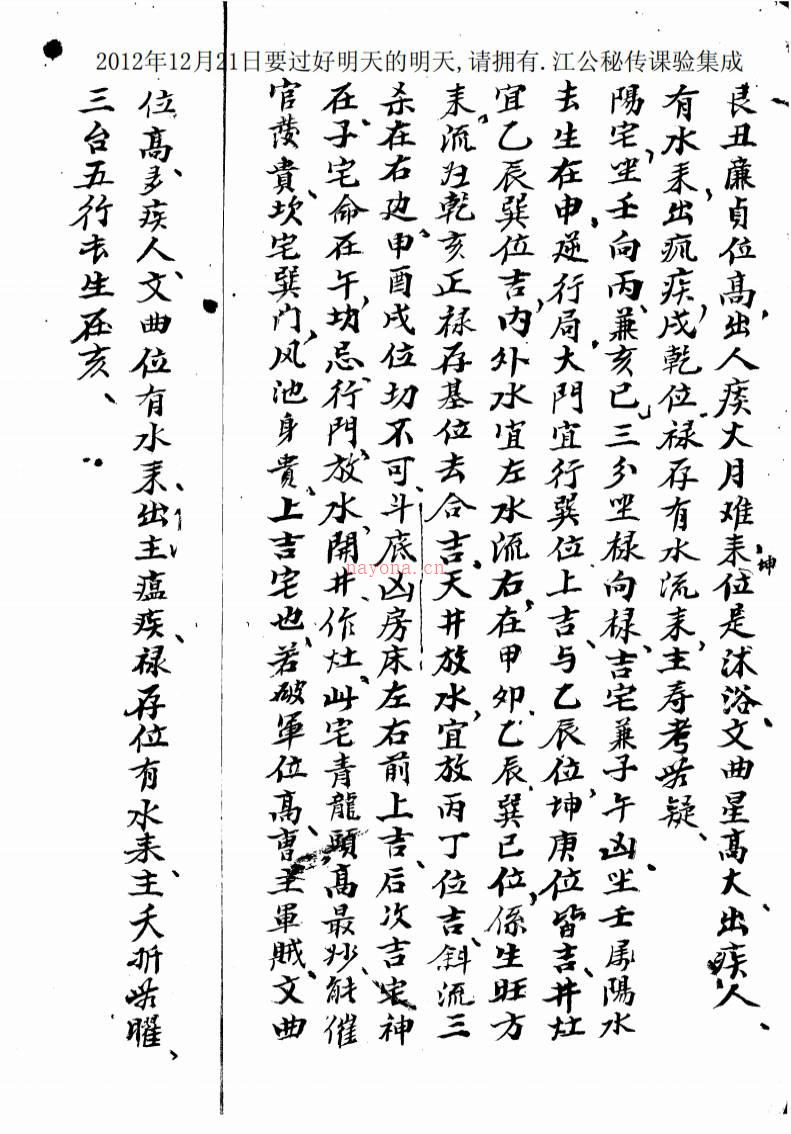 2012年12月21日要过好明天的明天,请拥有.江公秘传课验集成
艮丑廉貞位高、出人痪大月难耒位是沐浴、文曲星高大、出疾人、
坤
有水耒出疯疾、戌乾位禄存有水流耒、主寿考无疑、
陽宅、坐壬向丙、兼亥巳、三分坐禄向禄、吉宅兼子午凶、坐壬属陽水
去生在申、逆行局、大門宜行巽位上吉、与乙辰位、坤庚位皆吉、井灶
宜乙辰巽位吉、内外水宜左水流右、在甲卯、乙辰、巽巳位、係生旺方
耒、流归乾亥正禄存基位去合吉、天井放水、宜放丙丁位吉、斜流三
杀在右边、申酉戌位切不可、斗底凶房床左右前上吉、后次吉宅神
在子宅命在午、切忌、行門、放水、開井、作灶、此宅青龍頭高最妙、能催
官發貴、坎宅巽门、风池身貴、上吉宅也、若破軍位高、主軍賊、文曲
位高、多疾人、文曲位有水耒、出主瘟疾、禄存位有水耒、主夭折无曜、
三台五行長生在亥、
nayona.cn